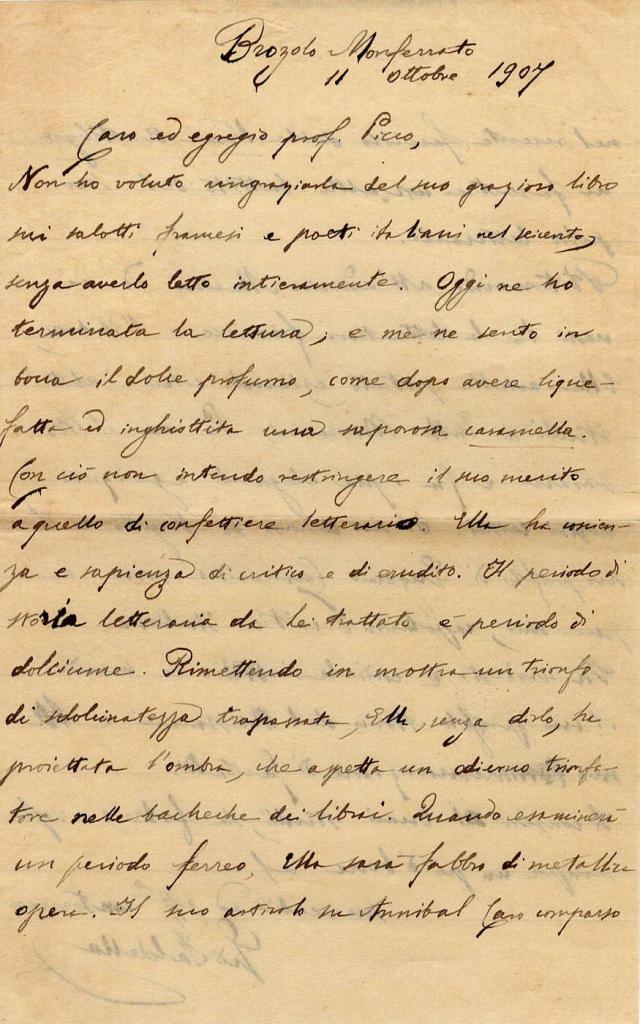 Brozolo Monferrato
11 Ottobre 1907
Caro ed egregio prof. Picco,
Non ho voluto ringraziarla del suo grazioso libro
sui salotti francesi e poeti italiani nel seicento,
senza averlo letto intieramente. Oggi ne ho
terminata la lettura, e me ne sento in
bocca il dolce profumo, come dopo avere lique-
fatta ed inghiottita una saporosa caramella.
Con ciò non intendo restringere il suo merito
a quello di confettiere letterario. Ella ha coscien-
za e sapienza di critico e di erudito. Il periodo di
storia letteraria da Lei trattato è periodo di
dolciume. Rimettendo in mostra un trionfo
di sdolcinatezza trapassata, Ella, senza dirlo, ha
proiettata l'ombra, che aspetta un odierno trionfa-
tore nelle bacheche dei librai. Quando esaminerà
un periodo ferreo, Ella sarà fabbro di metallica
opera. Il suo articolo su Annibal Caro comparso